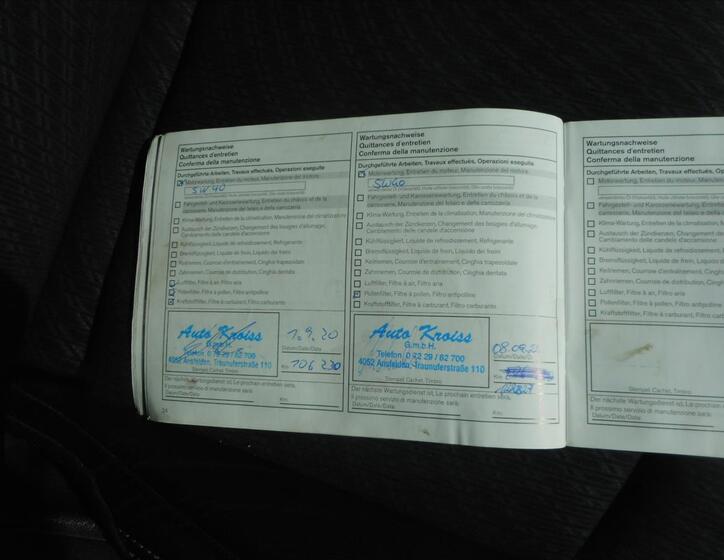 Wartungsnachweise
Quittances d'entretien
Conferma della manutenzione
Durchgeführte Arbeiten, Travaux effectués, Operazioni eseguite
Motorwartung, Entretien du moteur, Manutenzione del motore
5W40
Fahrgestell- und Karosseriewartung, Entretien du châssis et de la
carrosserie, Manutenzione del telaio e della carrozzeria
Klima-Wartung, Entretien de la climatisation, Manutenzione del climatizzatore
Austausch der Zündkerzen, Changement des bougies d'allumage,
Cambiamento delle candele d'accensione
Kühlflüssigkeit, Liquide de refroidissement, Refrigerante
Bremsflüssigkeit, Liquide de frein, Liquido dei freni
Keilriemen, Courroie d'entraînement, Cinghia trapezoidale
Zahnriemen, Courroie de distribution, Cinghia dentata
Luftfilter, Filtre à air, Filtro aria
Pollenfilter, Filtre à pollen, Filtro antipolline
Kraftstofffilter, Filtre à carburant, Filtro carburante
Auto Kroiss
G.m.b.H.
Telefon 0 72 29 / 82 700
4052 Ansfelden, Traunuferstraße 110
Stempel, Cachet, Timbro
1.9.20
Datum/Date/Data
Km: 106 230
Der nächste Wartungsdienst ist, Le prochain entretien sera,
Il prossimo servizio di manutenzione sarà:
Datum/Date/Data: Km:
24
Wartungsnachweise
Quittances d'entretien
Conferma della manutenzione
Durchgeführte Arbeiten, Travaux effectués, Operazioni eseguite
Motorwartung, Entretien du moteur, Manutenzione del motore
5W40
Fahrgestell- und Karosseriewartung, Entretien du châssis et de la
carrosserie, Manutenzione del telaio e della carrozzeria
Klima-Wartung, Entretien de la climatisation, Manutenzione del climatizzatore
Austausch der Zündkerzen, Changement des bougies d'allumage,
Cambiamento delle candele d'accensione
Kühlflüssigkeit, Liquide de refroidissement, Refrigerante
Bremsflüssigkeit, Liquide de frein, Liquido dei freni
Keilriemen, Courroie d'entraînement, Cinghia trapezoidale
Zahnriemen, Courroie de distribution, Cinghia dentata
Luftfilter, Filtre à air, Filtro aria
Pollenfilter, Filtre à pollen, Filtro antipolline
Kraftstofffilter, Filtre à carburant, Filtro carburante
Auto Kroiss
G.m.b.H.
Telefon 0 72 29 / 82 700
4052 Ansfelden, Traunuferstraße 110
Stempel, Cachet, Timbro
Datum/Date/D
Km:
Der nächste Wartungsdienst ist, Le prochain entretien sera,
Il prossimo servizio di manutenzione sarà:
Datum/Date/Data: Km:
Wartungsnachweise
Quittances d'entretien
Conferma della manutenzione
Durchgeführte Arbeiten, Travaux effectués, Op
Motorwartung, Entretien du moteur, Manuten
Fahrgestell- und Karosseriewartung, Entretien
carrosserie, Manutenzione del telaio e della
Klima-Wartung, Entretien de la climatisation
Austausch der Zündkerzen, Changement des
Cambiamento delle candele d'accensione
Kühlflüssigkeit, Liquide de refroidissement,
Bremsflüssigkeit, Liquide de frein, Liquido
Keilriemen, Courroie d'entraînement, Cing
Zahnriemen, Courroie de distribution, Cin
Luftfilter, Filtre à air, Filtro aria
Pollenfilter, Filtre à pollen, Filtro antipolli
Kraftstofffilter, Filtre à carburant, Filtro car
Stempel, Cachet, Timbro
Der nächste Wartungsdienst ist, Le prochain
Il prossimo servizio di manutenzione sarà:
Datum/Date/Data: